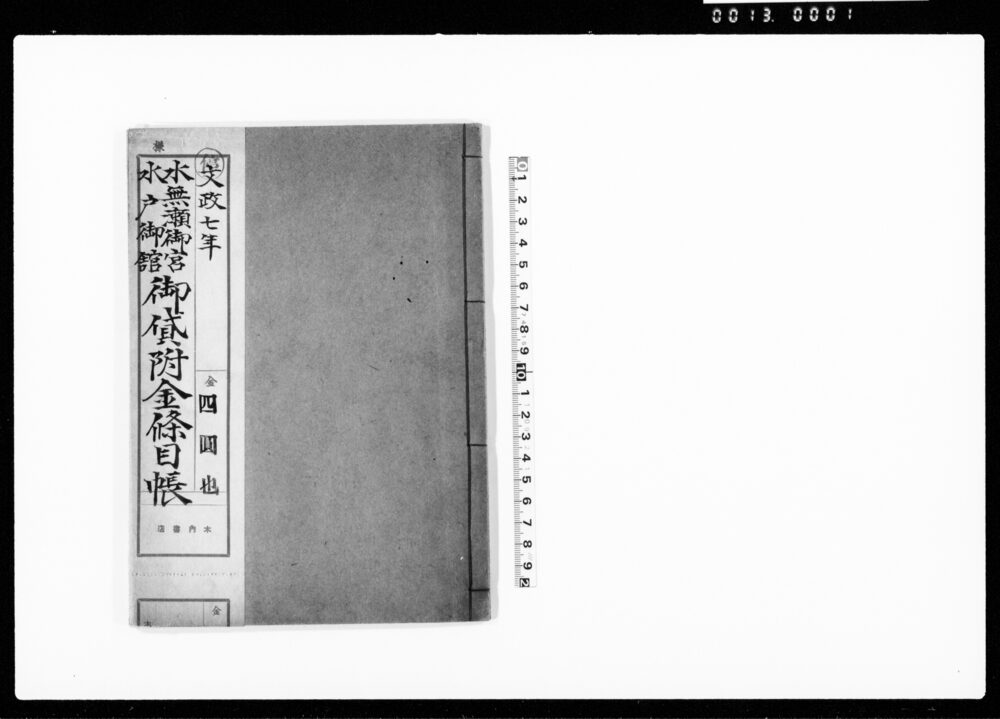 0013. 0001
様
文政七年
水無瀬御宮
水戸御館
御貸附金條目帳
金
四圓也
木内書店
金
0 1 2 3 4 5 6 7 8 9 10 1 2 3 4 5 6 7 8 9 2